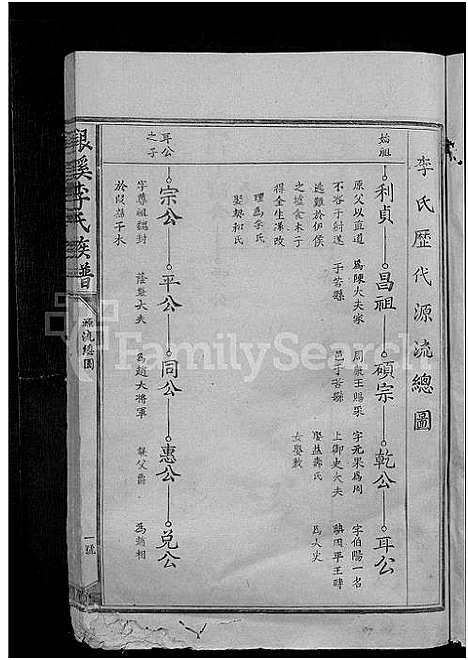 李氏歷代源流總圖
始祖
利貞
原父以直道
不容于紂遂
逃難於伊侯
之墟食木子
得全生漢改
理為李氏
娶契和氏
昌祖
為陳大夫家
于苦縣
碩宗
周康王賜采
邑于苦縣
乾公
字元果為周
上御史大夫
娶益壽氏
女嬰敷
耳公
字伯陽一名
為大史
耳公
之子
宗公
字尊祖魏封
於段為干木
平公
同公
為趙大將軍
惠公
襲父爵
兌公
為趙相
銀溪李氏族譜
源流總圖
一號
FamilySearch